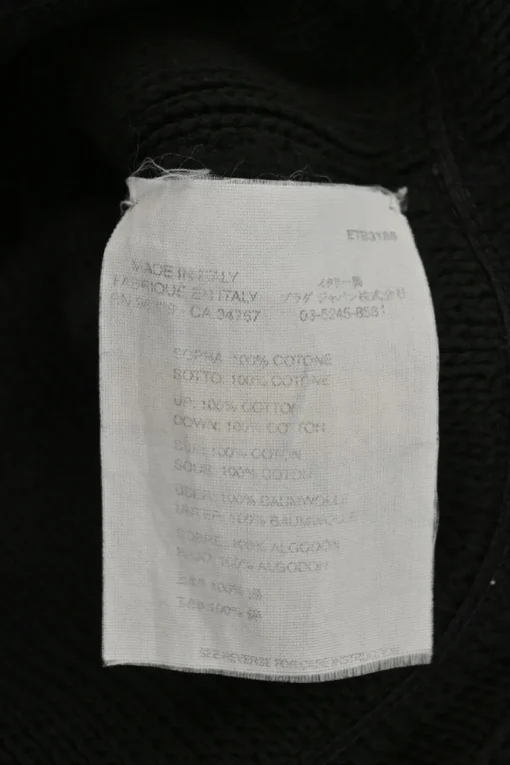 MADE IN ITALY
FABRIQUE EN ITALY
CA 34267
イタリー製
プラダ ジャパン株式会社
SOPRA: 100% COTONE
SOTTO: 100% COTONE
UP: 100% COTTON
DOWN: 100% COTTON
SUR: 100% COTON
SOUS: 100% COTON
UBER: 100% BAUMWOLLE
UNTER: 100% BAUMWOLLE
SOBRE: 100% ALGODON
BAJO: 100% ALGODON
100% 綿
100% 綿
SEE REVERSE FOR CARE INSTRUCTION